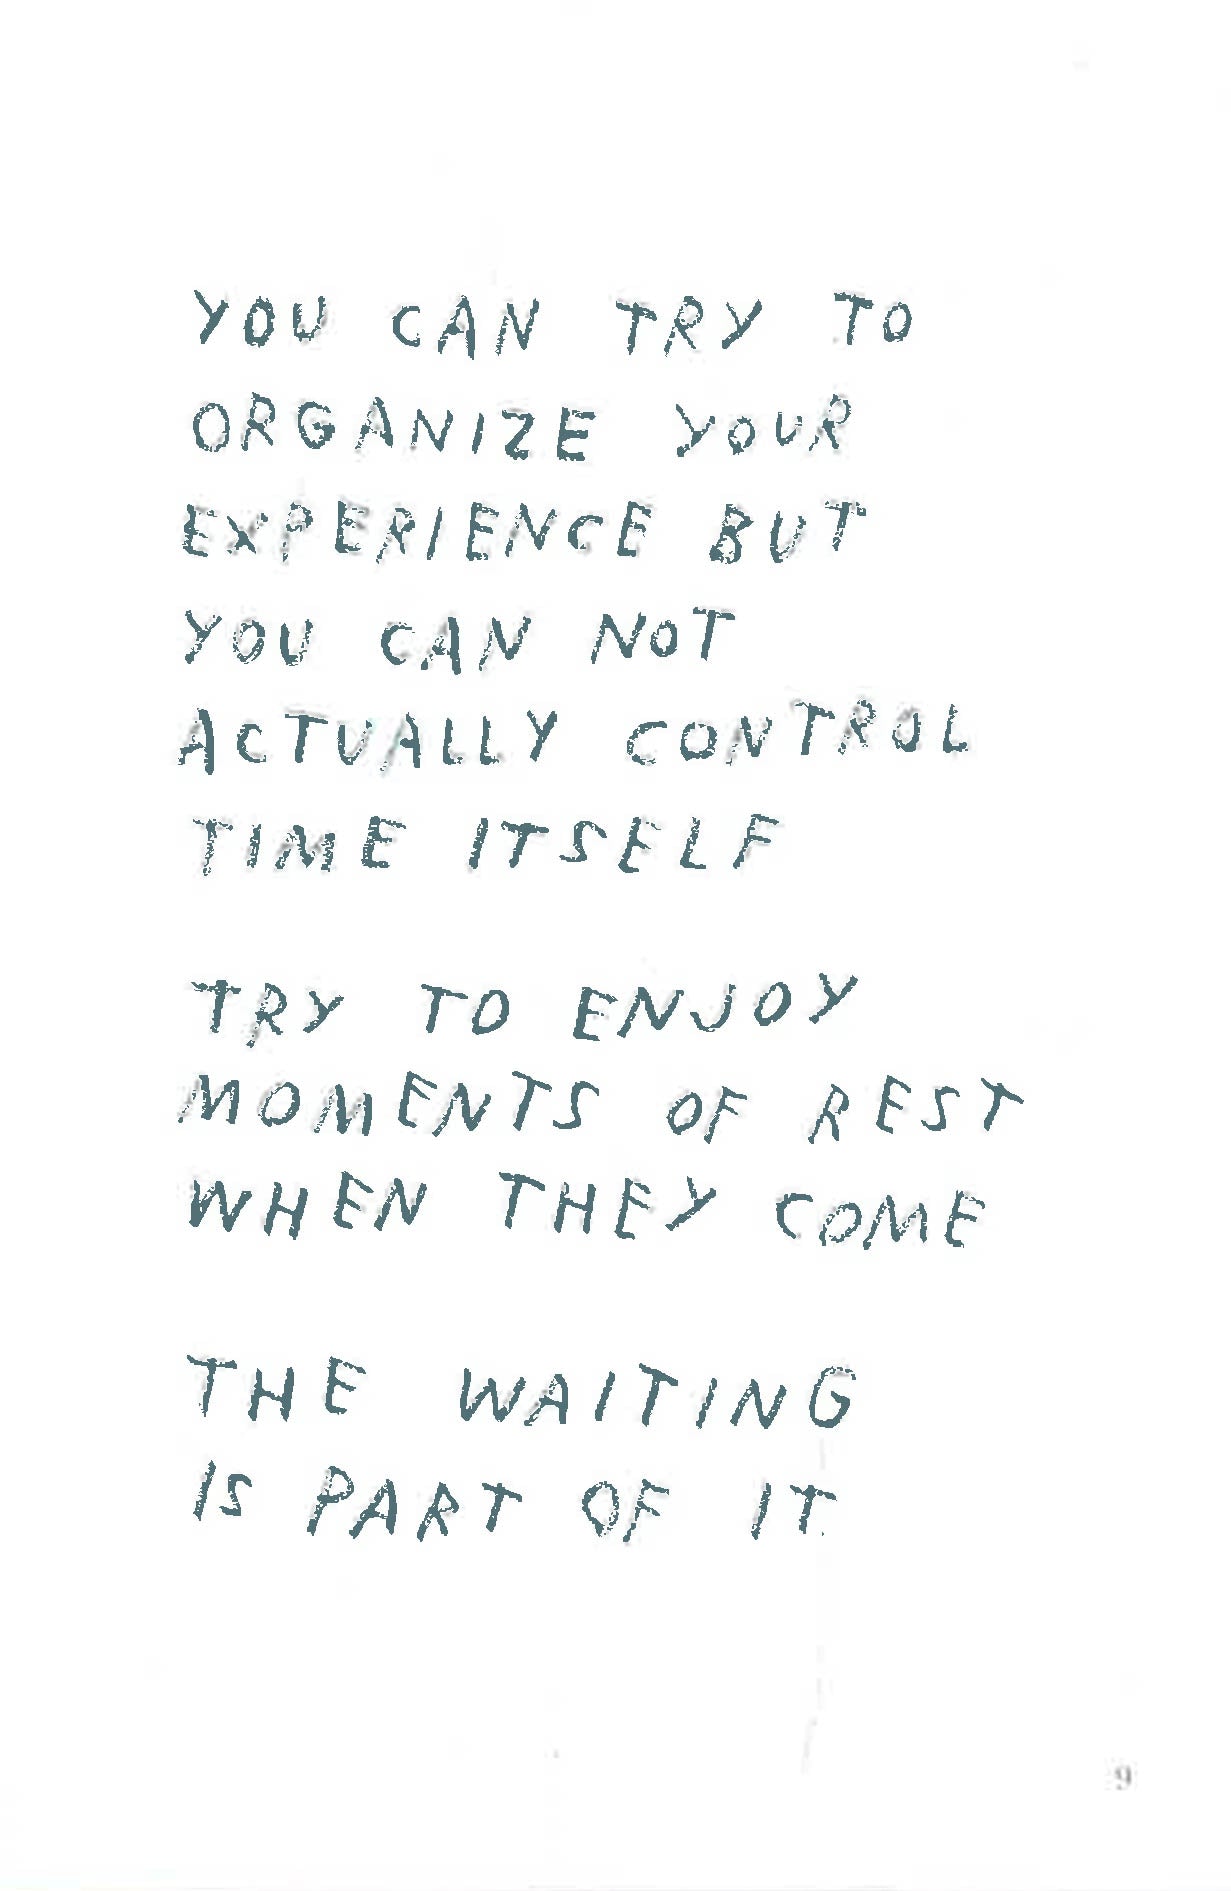 YOU CAN TRY TO
ORGANIZE YOUR
EXPERIENCE BUT
YOU CAN NOT
ACTUALLY CONTROL
TIME ITSELF
TRY TO ENJOY
MOMENTS OF REST
WHEN THEY COME
THE WAITING
IS PART OF IT
9